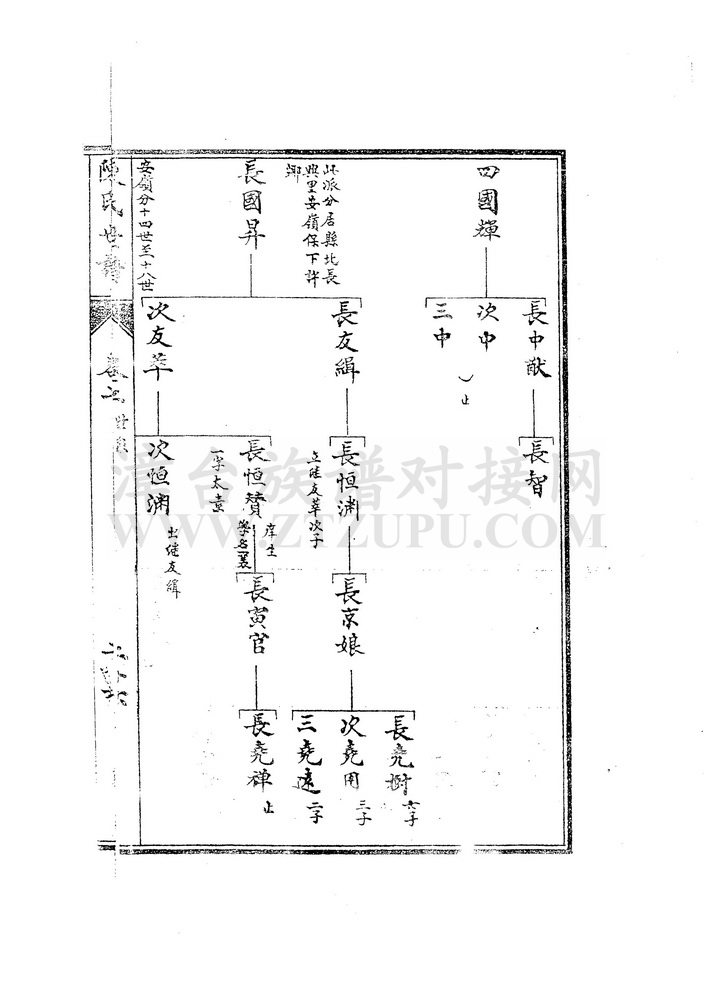 四國輝
長中猷
次中
三中
止
長智
此派分居縣北長
興里安嶺保下許
鄉
長國昇
長友緝
次友萃
長恒渊
立継友萃次子
長恒贊
庠生
一字太素
次恒渊
出继友緝
長京娘
長寅官
長堯樹
六子
次堯用
三子
三堯遠
二子
長堯禅
止
安嶺分十四世至十八世
陳氏世譜
漳台族谱对接网
WWW.ZTZUPU.COM